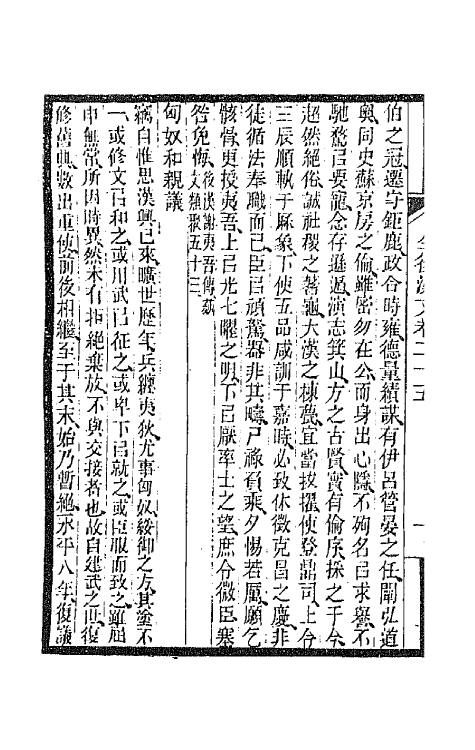 全後漢文卷二十五
伯之冠遷守鉅鹿政合時雍德量績謀有伊呂管晏之任闡弘道
奧同史蘇京房之倫雖密勿在公而身出心隱不殉名㠯求譽不
馳騖㠯要寵念存遜遁演志箕山方之古賢實有倫序採之于今
超然絕俗誠社稷之蓍龜大漢之棟甍宜當拔擢使登鼎司上令
三辰順軌于歷象下使五品咸訓于嘉時必致休徵克昌之慶非
徒循法奉職而已臣㠯頑駑器非其疇尸祿負乘夕惕若厲願乞
骸骨更授夷吾上㠯光七曜之明下㠯厭率土之望庶令微臣塞
咎免悔後漢謝夷吾傳蓺文類聚五十三
匈奴和親議
竊自惟思漢興㠯來曠世歷年兵纏夷狄尤事匈奴綏御之方其塗不
一或修文㠯和之或用武㠯征之或卑下㠯就之或臣服而致之雖屈
申無常所因時異然未有拒絕棄放不與交接者也故自建武之世復
修舊典數出重使前後相繼至于其末始乃暫絕永平八年復議